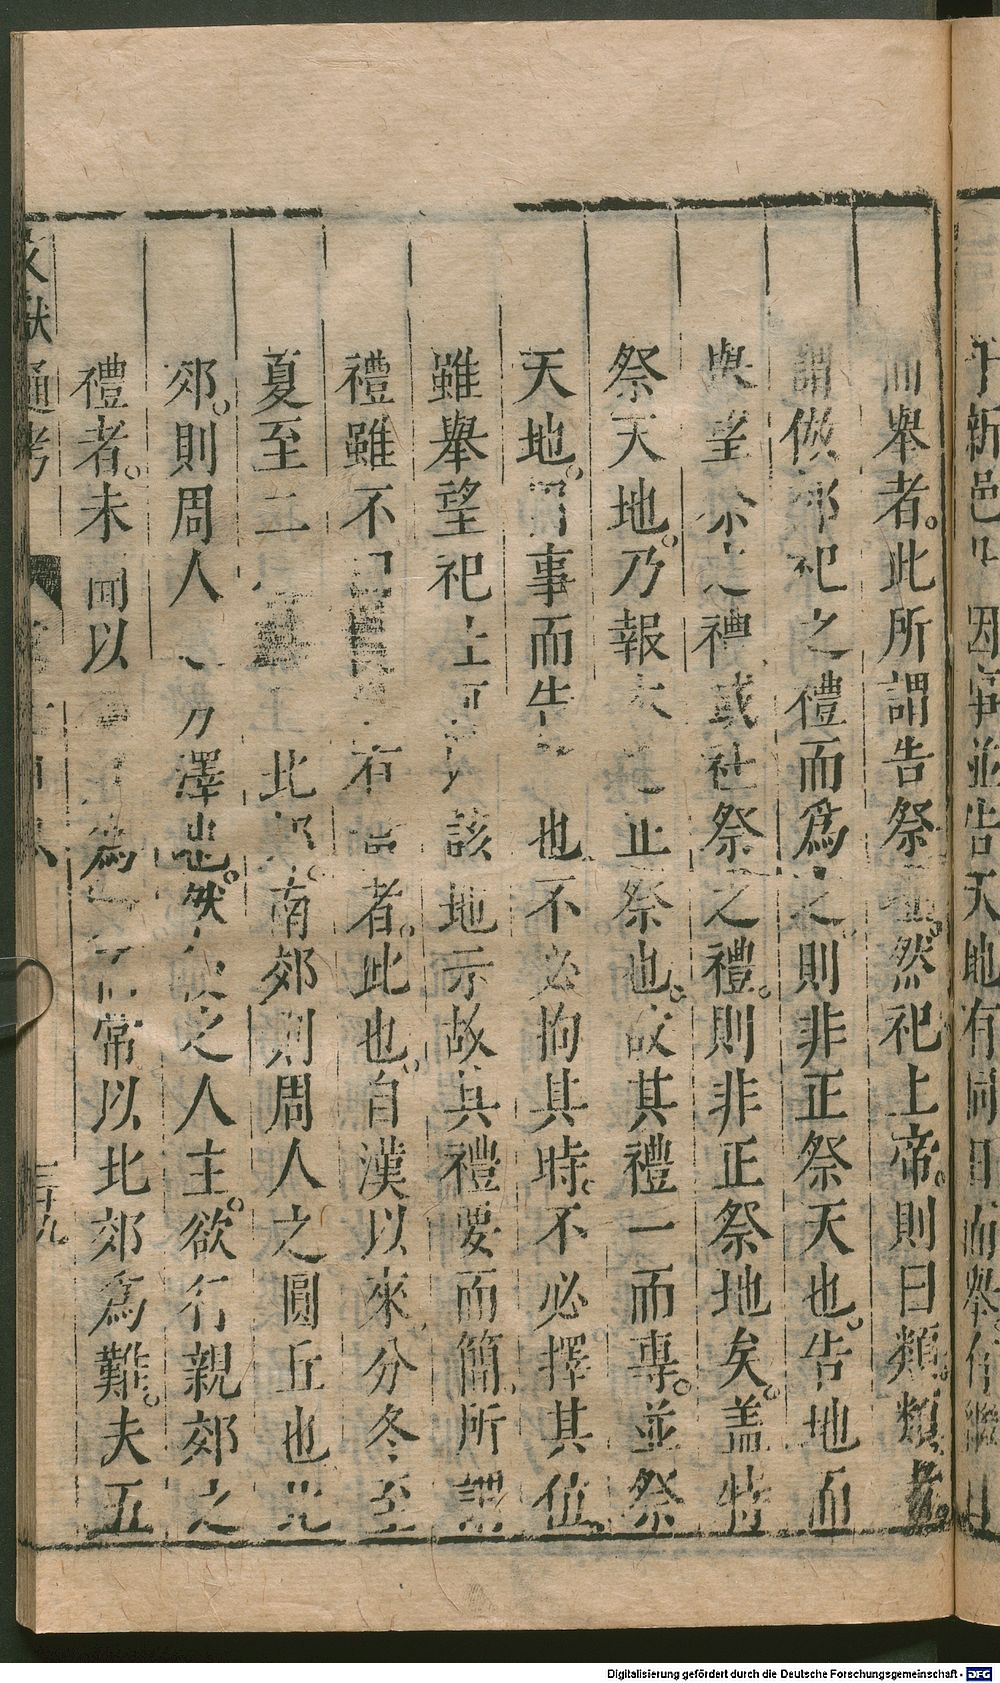 于新邑 因事並告天地有同日而舉
而舉者此所謂告祭也然祀上帝則曰類類者
謂倣郊祀之禮而爲之則非正祭天也告地而
舉望祭之禮或社祭之禮則非正祭地矣蓋特
祭天地乃報本之正祭也故其禮一而專並祭
天地 事而告之也不必拘其時不必擇其位
雖舉望祀上 該地示故其禮要而簡所謂
禮雖不 有 者此也自漢以來分冬至
夏至二 北郊南郊則周人之圓丘也北
郊則周人之方澤也然後之人主欲行親郊之
禮者未聞以 爲 常以北郊爲難夫五
文獻通考
三十九
Digitalisierung gefördert durch die Deutsche Forschungsgemeinschaft - DFG